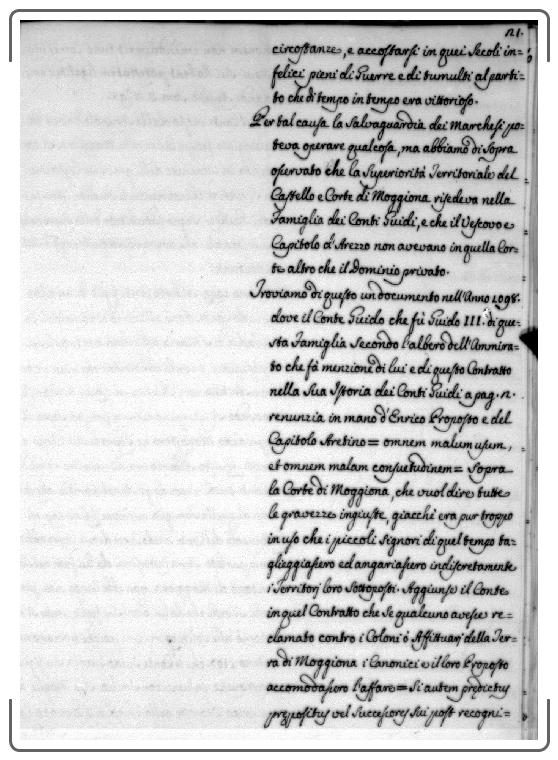 21.
circostanze, e accostarsi in quei Secoli in=
felici pieni di Guerre e di tumulti al parti=
to che di tempo in tempo era vittorioso.
Per tal causa la Salvaguardia dei Marchesi po=
teva operare qualcosa, ma abbiamo di Sopra
osservato che la Superiorità Territoriale del
Castello e Corte di Moggiona risedeva nella
Famiglia dei Conti Guidi, e che il Vescovo e
Capitolo d'Arezzo non avevano in quella Cor=
te altro che il Dominio privato.
Troviamo di questo un documento nell'Anno 1098.
dove il Conte Guido che fù Guido III. di que=
sta Famiglia Secondo l'albero dell'Ammira=
to che fà menzione di lui e di questo Contratto
nella Sua Istoria dei Conti Guidi a pag. 2.
renunzia in mano d'Enrico Proposto e del
Capitolo Aretino = omnem malum usum,
et omnem malam consuetudinem = Sopra
la Corte di Moggiona, che vuol dire tutte
le gravezze ingiuste, giacchè era pur troppo
in uso che i piccoli Signori di quel tempo ta=
glieggiassero ed angariassero indiscretamente
i Territorj loro Sottoposti. Aggiunse il Conte
in quel Contratto che Se qualcuno avesse re=
clamato contro i Coloni ò Affittuarj della Ter=
ra di Moggiona i Canonici e il loro Proposto
accomodassero l'affare = Si autem predictus
prepositus vel Successores Sui post recogni=